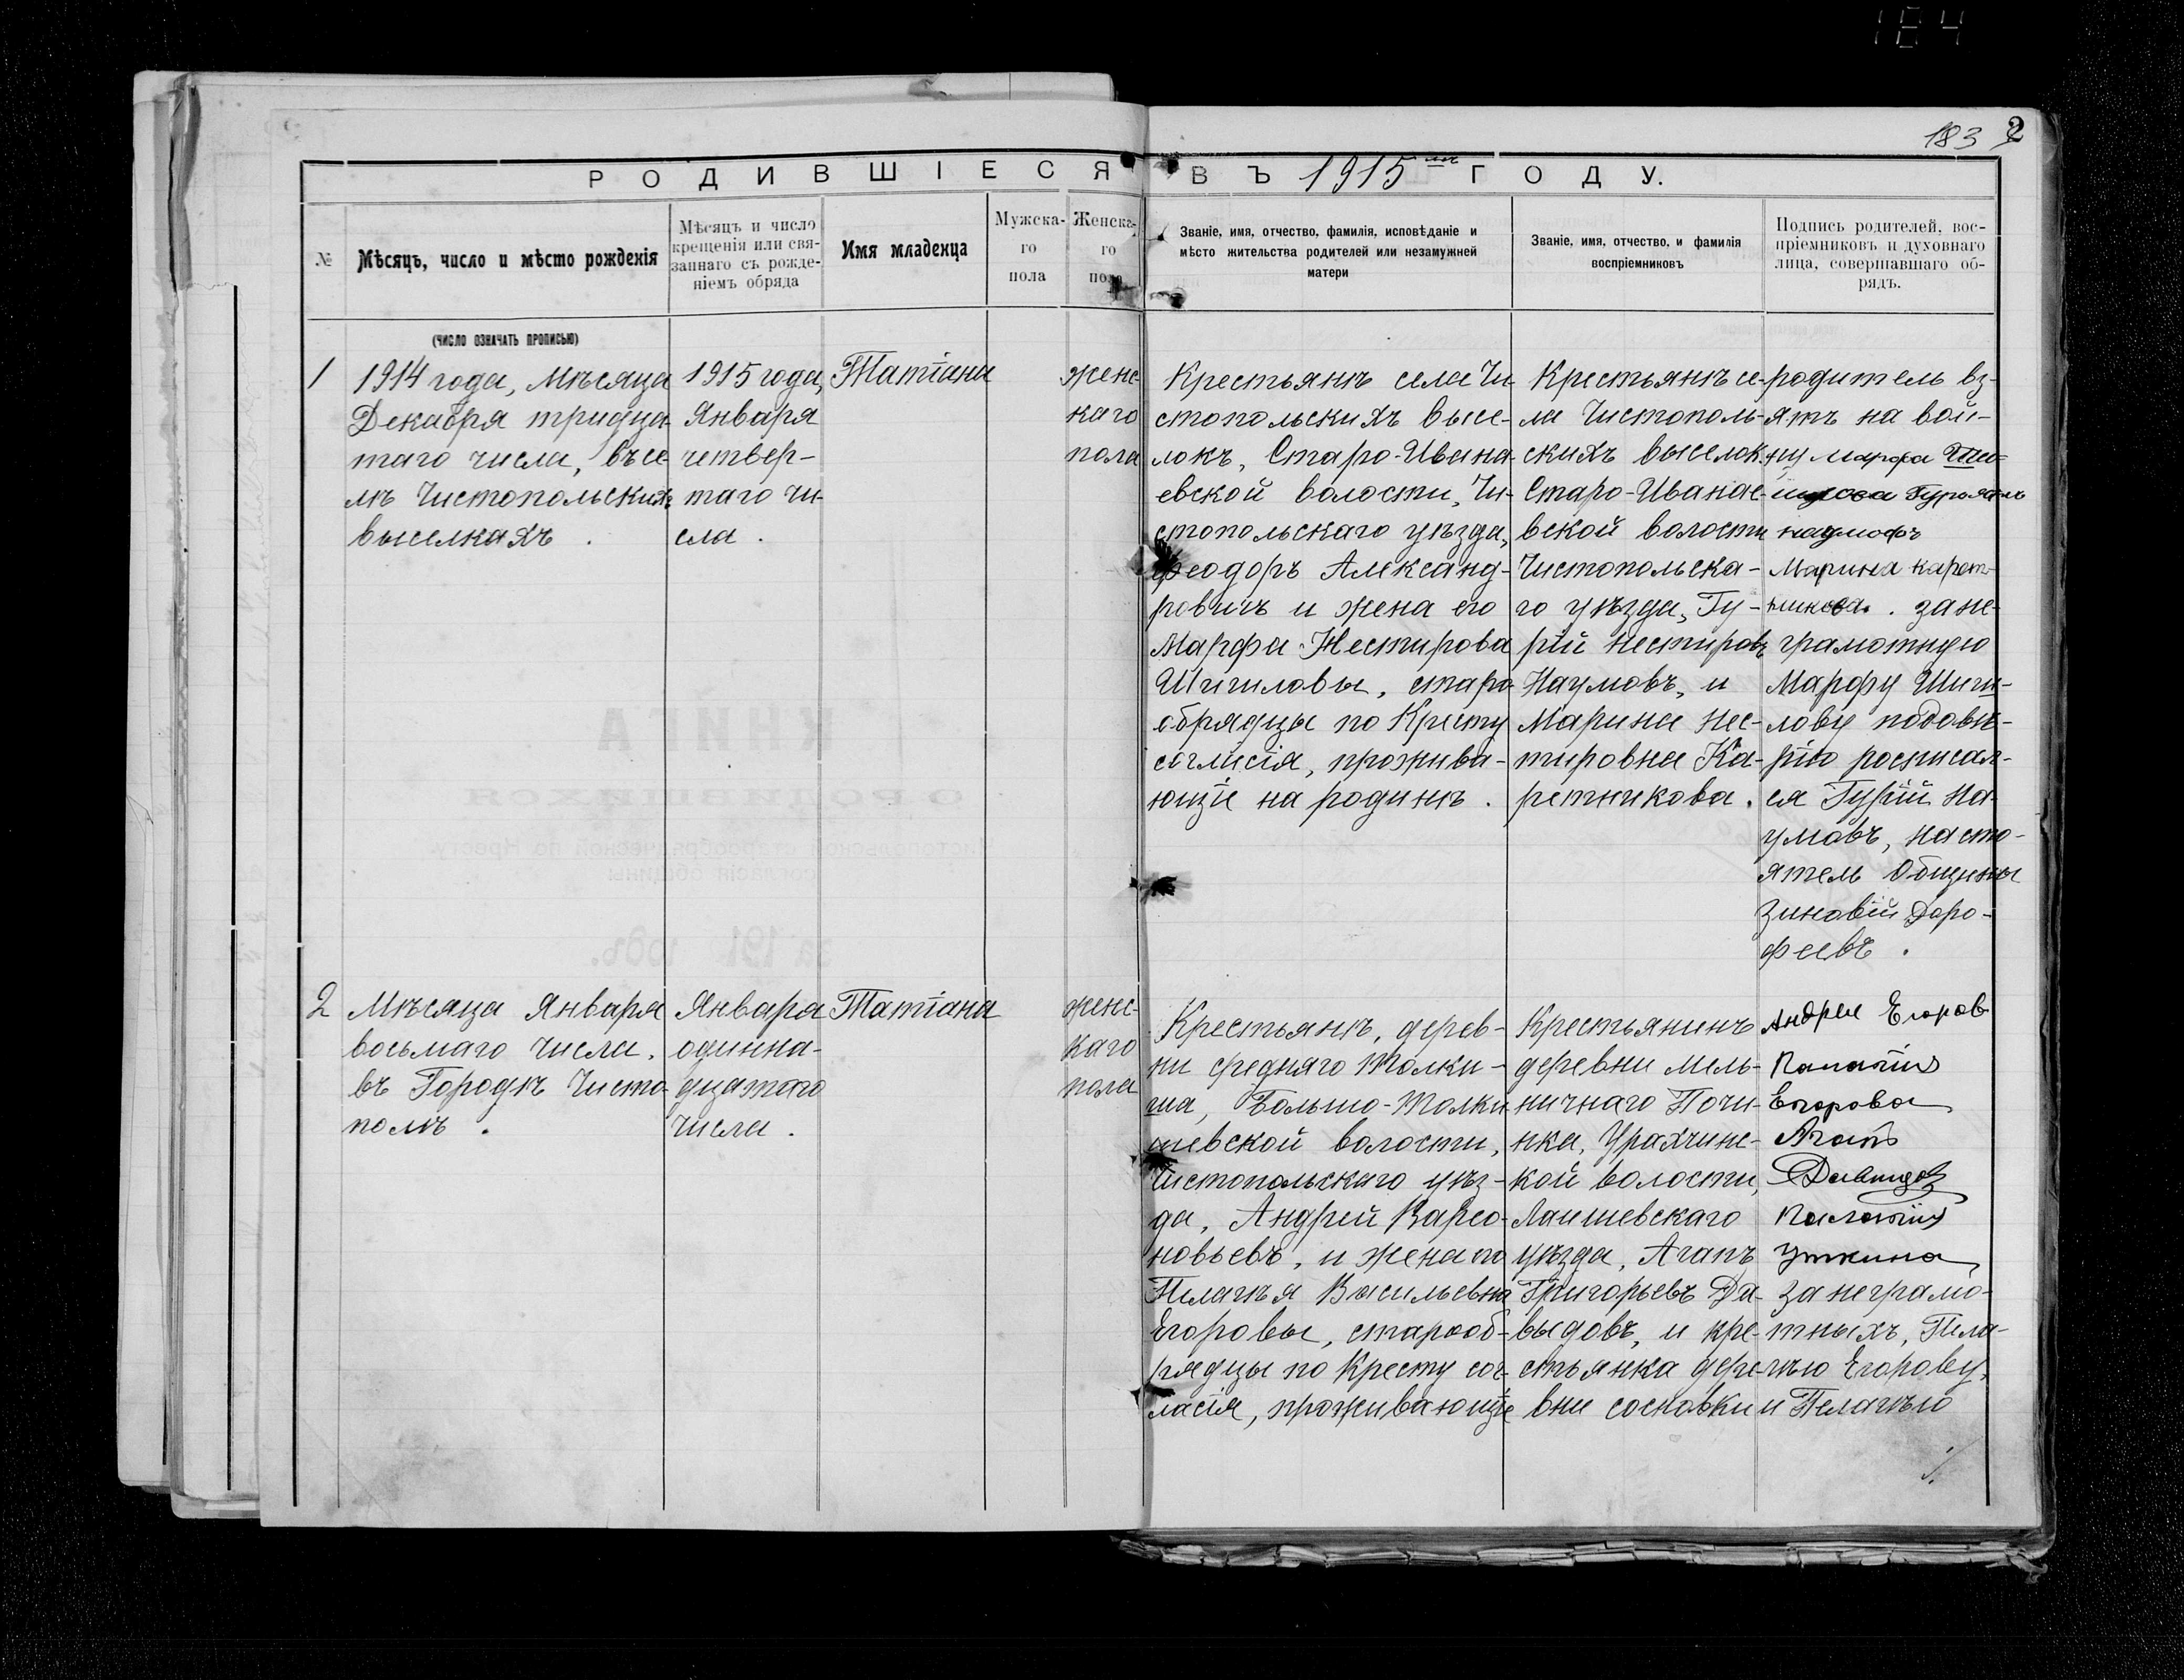 184
183 2
РОДИВШІЕСЯ ВЪ 1915мъ ГОДУ.
№
Мѣсяцъ, число и мѣсто рожденія
Мѣсяцъ и число
крещенія или свя-
заннаго съ рожде-
ніемъ обряда
Имя младенца
Мужска-
го
пола
Женска-
го
пола
Званіе, имя, отчество, фамилія, исповѣданіе и
мѣсто жительства родителей или незамужней
матери
Званіе, имя, отчество, и фамилія
воспріемниковъ
Подпись родителей, вос-
пріемниковъ и духовнаго
лица, совершавшаго об-
рядъ.
(ЧИСЛО ОЗНАЧАТЬ ПРОПИСЬЮ)
1
1914 года, Мѣсяца
Декабря тридца-
таго числа, въ се-
лѣ Чистопольскихъ
выселкахъ.
1915 года,
Января
четвер-
таго чи-
сла.
Татіана
женс-
каго
пола
Крестьянъ села Чи-
стопольскихъ высе-
локъ, Старо-Ивана-
евской волости, Чи-
стопольскаго уѣзда,
Феодоръ Александ-
ровичъ и жена его
Марфа Нестирова
Шигиловы, старо-
обрядцы по Кресту
согласія, прожива-
ющіе на родинѣ.
Крестьянъ се-
ла Чистополь-
скихъ выселок.
Старо-Иванае-
вской волости
Чистопольска-
го уѣзда, Гу-
рій Нестировъ
Наумовъ, и
Марина Нес-
тировна Ка-
ретникова.
родитель вз-
ятъ на вой-
ну Марфа Ши-
Наумофъ
Марина карет-
никова. за не-
грамотную
Марфу Шиги-
лову по довѣ-
рію росписал-
ся Гурій На-
умовъ, Насто-
ятель Общины
Зиновій Доро-
феевъ.
2
Мѣсяца Января
восьмаго числа,
въ Городѣ Чисто-
полѣ.
Января
одинна-
дцатаго
числа.
Татіана
женс-
каго
пола
Крестьянъ, дерев-
ни средняго Толки-
ша, Больше-Толки-
шевской волости,
Чистопольскаго уѣз-
да, Андрей Варсо-
новьевъ, и жена его
Пелагѣя Васильевна
Егоровы, старооб-
рядцы по Кресту сог-
ласія, проживающіе
Крестьянинъ
деревни Мель-
ничнаго Почи-
нка, Урахчинс-
кой волости,
Лаишевскаго
уѣзда, Агапъ
Григорьевъ Да-
выдовъ, и кре-
стьянка дере-
вни сосновки
Андрей Егоров
Егорова
Агапъ
Давидовъ
Уткина
за неграмо-
тныхъ, Пела-
гѣю Егорову,
и Пелагѣю